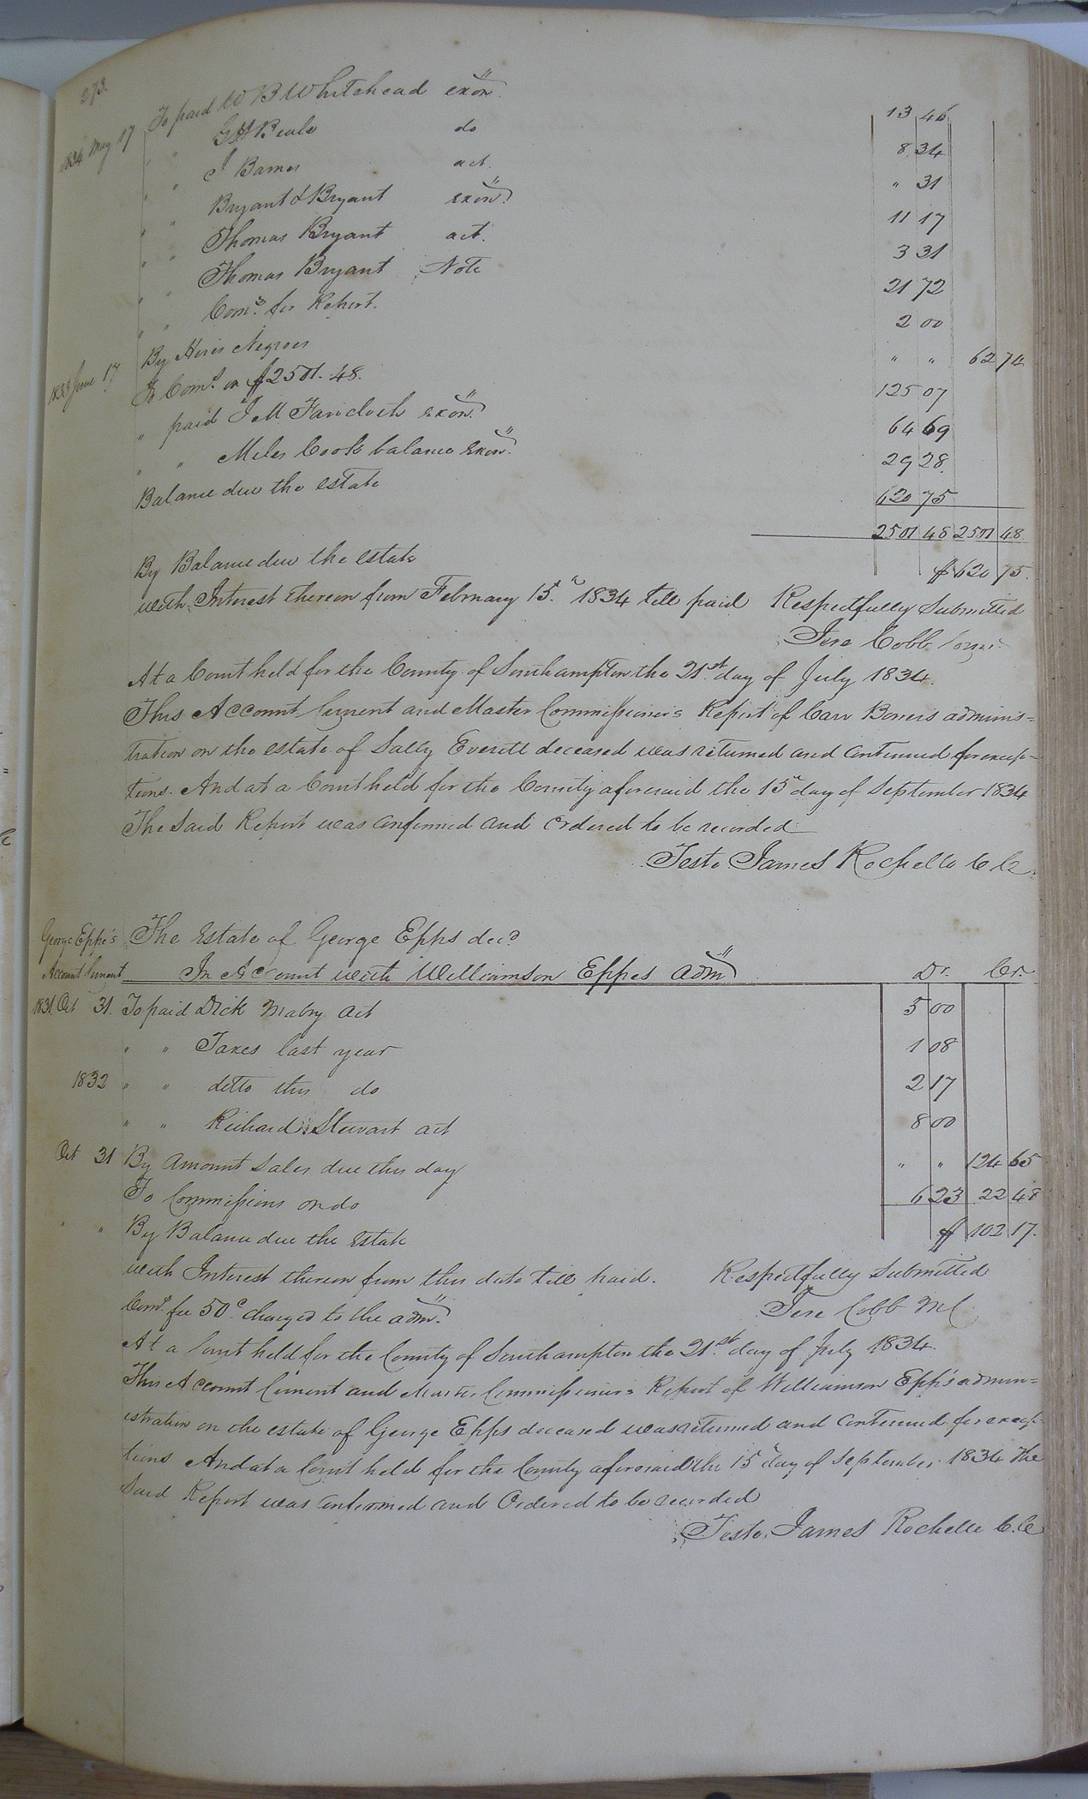 273.
1834 May 17 To paid W B Whitehead exōn 13 46
" " G H Beale do 8 34
" " J Barnes act. " 31
" " Bryant & Bryant exōn 11 17
" " Thomas Bryant act. 3 31
" " Thomas Bryant Note 21 72
" " Comr. for Report. 2 00
By Hires Negroes " " 62 74
1833 June 17 To Coms. on $2501.48. 125 07
" paid J M exōn. 64 69
" " Miles Cook balance exōn. 29 28
Balance due the estate 620 75
2501 48 2501 48
By Balance due the estate $620 75.
with Interest thereon from February 15th. 1834 till paid Respectfully Submitted
Jere Cobb
At a Court held for the County of Southampton the 21st. day of July 1834.
This Account Current and Master Commissioners Report of Carr Bowers adminis=
tration on the estate of Sally Everett deceased was returned and continued for excep-
tions. And at a Court held for the County aforesaid the 15th day of September 1834
The Said Report was confirmed and Ordered to be recorded
Teste James Rochelle C. Ck.
George Epps's The Estate of George Epps decd
Account Current In Account with Williamson Eppes admr Dr. Cr.
1831 Oct 31. To paid Dick Mabry act 5 00
" " Taxes last year 1 08
1832 " " ditto this do 2 17
" " Richard Stewart act 8 00
Oct 31 By Amount Sales due this day " " 124 65
To Commissions on do 6 23 22 48
" " By Balance due the Estate $ 102 17.
with Interest thereon from this date till paid. Respectfully Submitted
Comr. fee 50c. charged to the admr. Jere Cobb M C
At a Court held for the County of Southampton the 21st. day of July 1834.
This Account Current and Master Commissioners Report of Williamson Epps's admin=
istration on the estate of George Epps deceased was returned and continued for excep-
tions And at a Court held for the County aforesaid the 15th day of September 1834 the
Said Report was confirmed and Ordered to be recorded
Teste. James Rochelle C. Ck